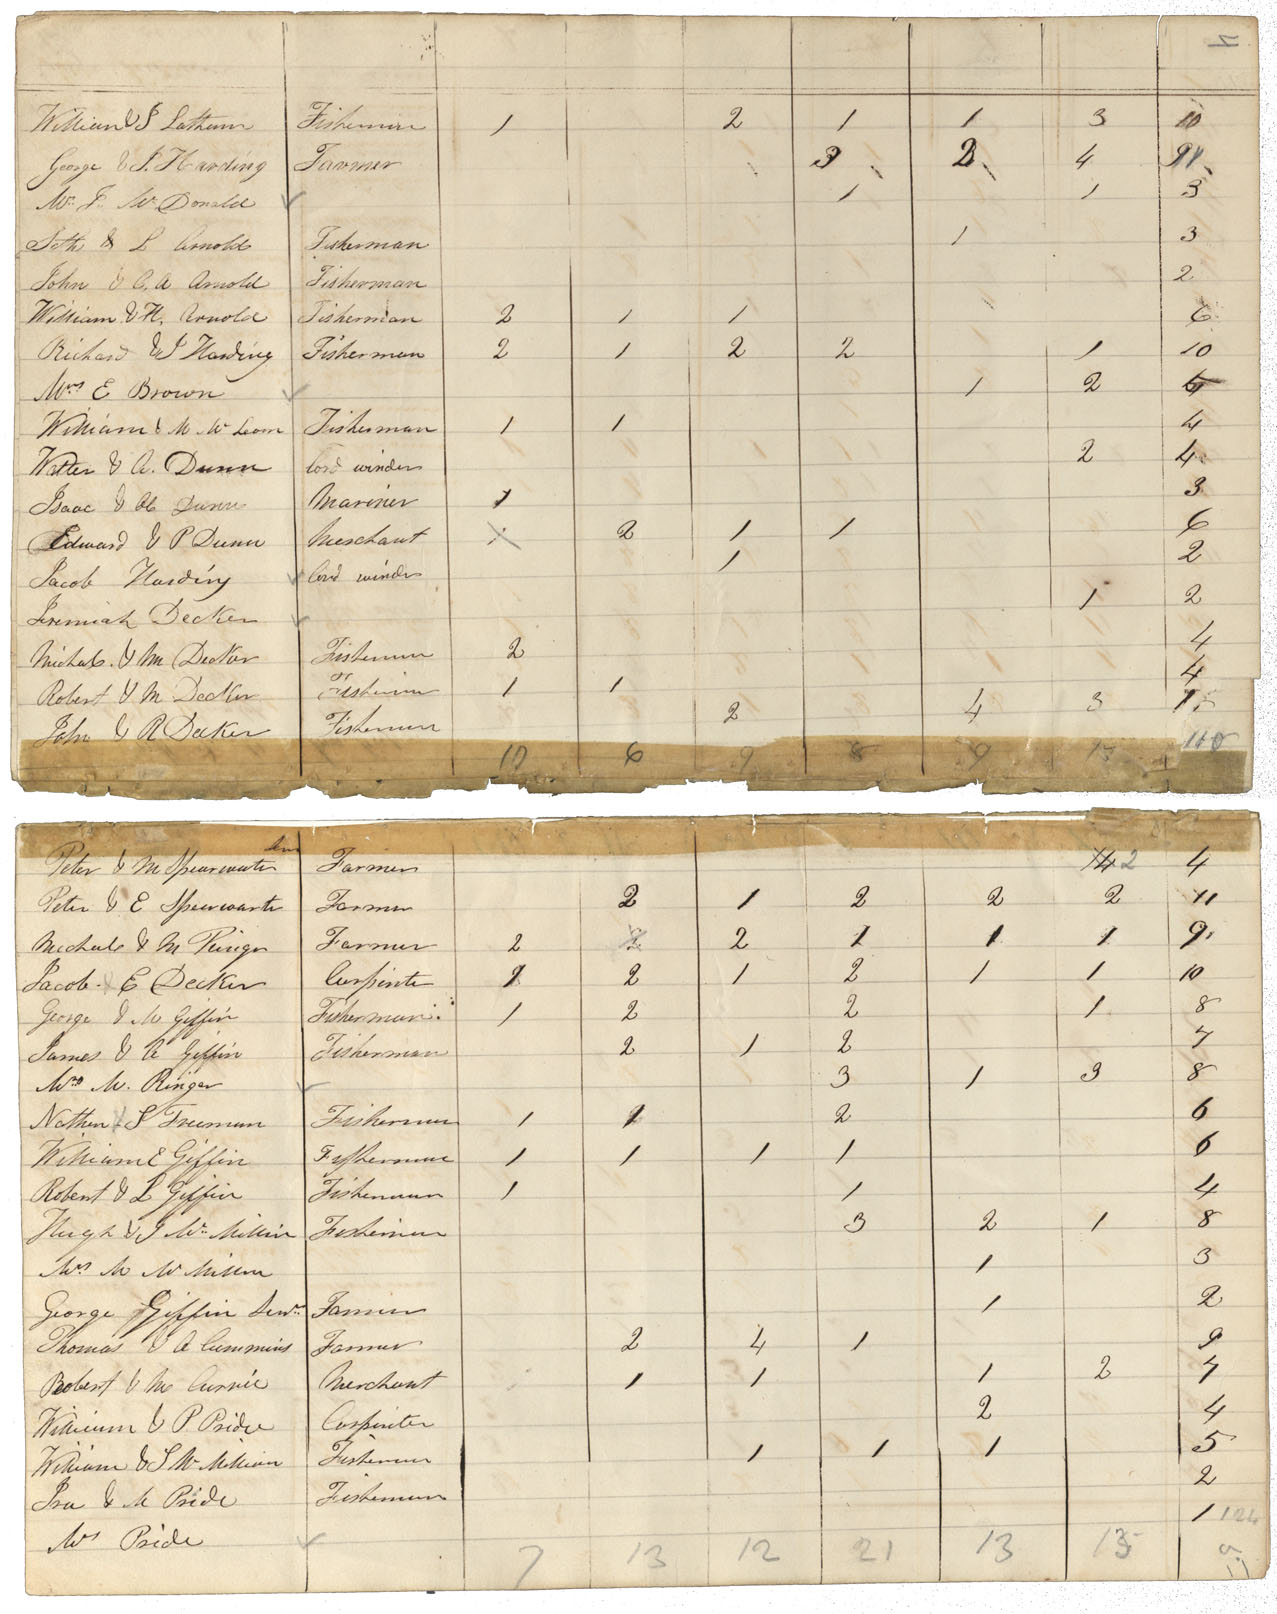 William & S Lathum Fisherman 1 2 1 1 3 10
George & J. Harding Farmer 3 2 4 11
Mrs J. Mc Donald 1 1 3
Seth & L Arnold Fisherman 1 3
John & C. A Arnold Fisherman 2
William & H. Arnold Fisherman 2 1 1 6
Richard & J Harding Fisherman 2 1 2 2 1 10
Mrs E Brown 1 2
William & M Mc Leom Fisherman 1 1 4
Walter & A. Dunn Cord winder 2 4
Isaac & Dunn Mariner 1 3
Edward & P Dunn Merchant 2 1 1 6
Jacob Harding Cord winder 1 2
Jeremiah Decker 1 2
Michale & M Decker Fisherman 2 4
Robert & M Decker Fisherman 1 1 4
John & R Decker Fisherman 2 4 3
10 6 9 8 9 110
Peter & M Spearwater Senr Farmer 2 4
Peter & E Spearwater Farmer 2 1 2 2 2 11
Michale & M Ringer Farmer 2 2 1 1 1 9
Jacob E Decker Carpinter 1 2 1 2 1 1 10
George & M Giffin Fisherman 1 2 2 1 8
James & A Giffin Fisherman 2 1 2 7
Mrs M. Ringer 3 1 3 8
Nathen & S Freeman Fisherman 1 1 2 6
William E Giffin Fisherman 1 1 1 1 6
Robert & L Giffin Fisherman 1 1 4
Hugh & J Mc Millin Fisherman 3 2 1 8
Mrs M Mc Millin 1 3
George Giffin Senr Farmer 1 2
Thomas & A Cummins Farmer 2 4 1 9
Robert & M Currie Merchant 1 1 1 2 7
William & P Pride Carpinter 2 4
William & S Mc Millian Fisherman 1 1 1 5
Ira & M Pride Fisherman 2
Mrs Pride 1 124
7 13 12 21 13 13